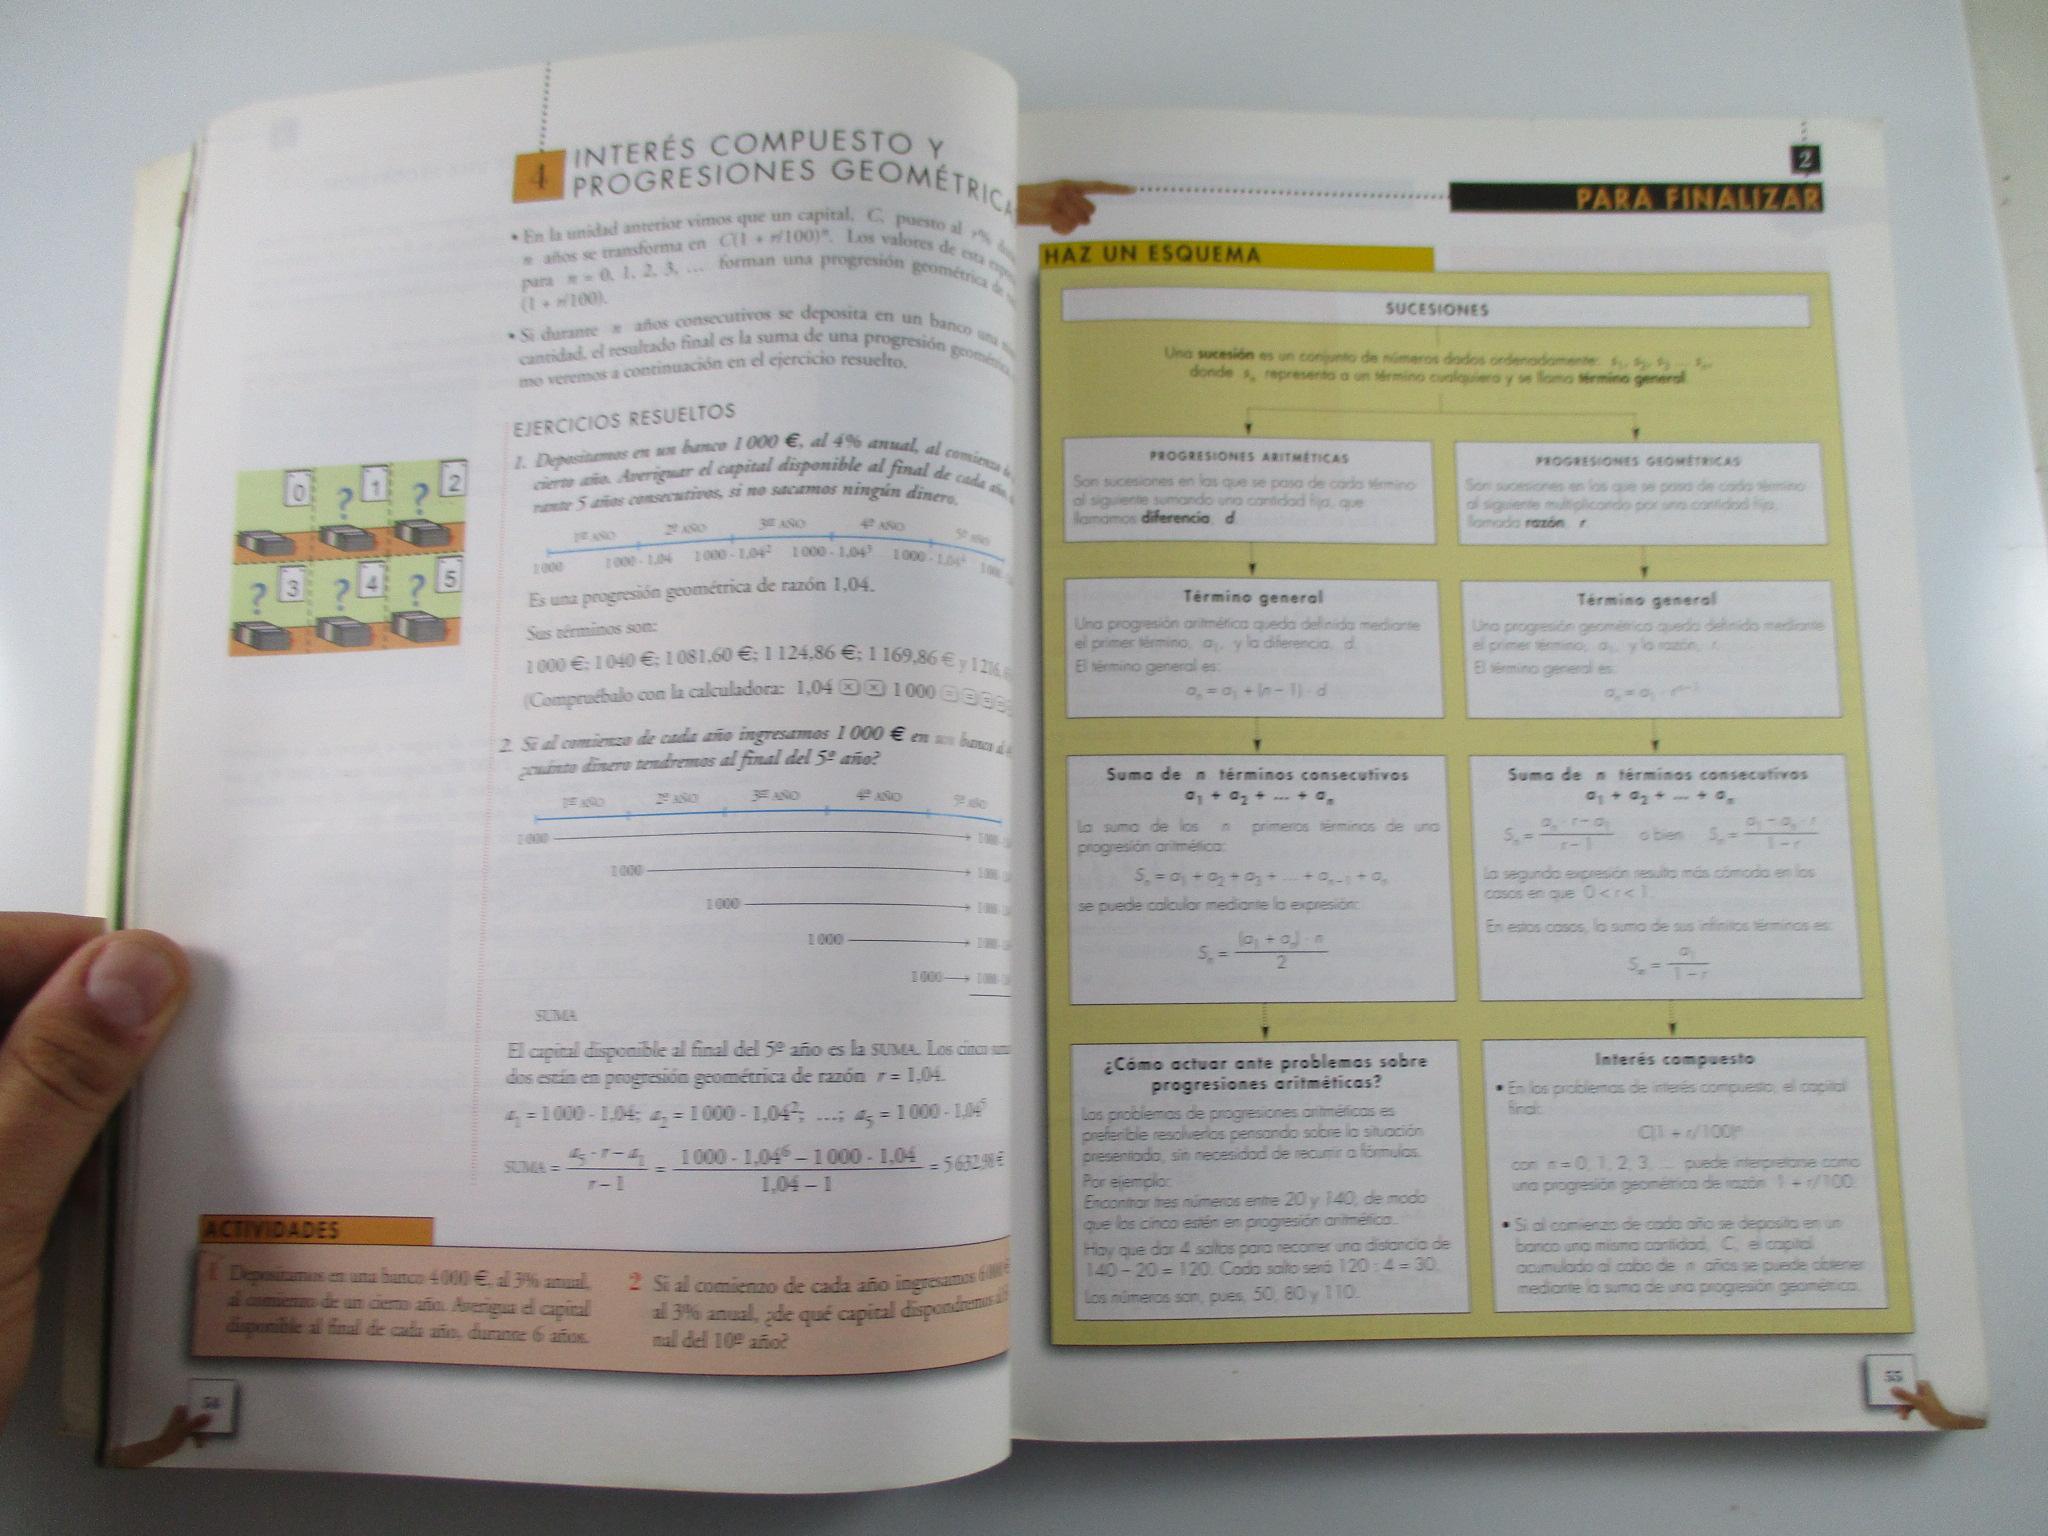 4
INTERÉS COMPUESTO Y
PROGRESIONES GEOMÉTRICA
• En la unidad anterior vimos que un capital, C, puesto al r%
n años se transforma en C(1 + r/100)ⁿ. Los valores de esta
para n = 0, 1, 2, 3, … forman una progresión geométrica de
(1 + r/100).
• Si durante n años consecutivos se deposita en un banco una
cantidad, el resultado final es la suma de una progresión geométrica
mo veremos a continuación en el ejercicio resuelto.
EJERCICIOS RESUELTOS
1. Depositamos en un banco 1 000 €, al 4% anual, al comienzo
cierto año. Averiguar el capital disponible al final de cada año,
rante 5 años consecutivos, si no sacamos ningún dinero.
0 ? 1 ? 2
? 3 ? 4 ? 5
1er AÑO 2º AÑO 3er AÑO 4º AÑO 5º AÑO
1 000 1 000 · 1,04 1 000 · 1,04² 1 000 · 1,04³ 1 000 · 1,04⁴
Es una progresión geométrica de razón 1,04.
Sus términos son:
1 000 €; 1 040 €; 1 081,60 €; 1 124,86 €; 1 169,86 € y 1 216,
(Compruébalo con la calculadora: 1,04 × × 1 000 = = = =
2. Si al comienzo de cada año ingresamos 1 000 € en un banco al
¿cuánto dinero tendremos al final del 5º año?
1er AÑO 2º AÑO 3er AÑO 4º AÑO 5º AÑO
1 000
1 000
1 000
1 000
1 000
SUMA
El capital disponible al final del 5º año es la SUMA. Los cinco
dos están en progresión geométrica de razón r = 1,04.
a₁ = 1 000 · 1,04; a₂ = 1 000 · 1,04²; …; a₅ = 1 000 · 1,04⁵
SUMA = (a₅ · r – a₁)/(r – 1) = (1 000 · 1,04⁶ – 1 000 · 1,04)/(1,04 – 1) = 5 632,98 €
ACTIVIDADES
1 Depositamos en una banco 4 000 €, al 3% anual,
al comienzo de un cierto año. Averigua el capital
disponible al final de cada año, durante 6 años.
2 Si al comienzo de cada año ingresamos 6 000 €
al 3% anual, ¿de qué capital dispondremos al
nal del 10º año?
54
2
PARA FINALIZAR
HAZ UN ESQUEMA
SUCESIONES
Una sucesión es un conjunto de números dados ordenadamente: s₁, s₂, s₃ … sₙ,
donde sₙ representa a un término cualquiera y se llama término general.
PROGRESIONES ARITMÉTICAS
Son sucesiones en las que se pasa de cada término
al siguiente sumando una cantidad fija, que
llamamos diferencia, d.
Término general
Una progresión aritmética queda definida mediante
el primer término, a₁, y la diferencia, d.
El término general es:
aₙ = a₁ + (n – 1) · d
Suma de n términos consecutivos
a₁ + a₂ + … + aₙ
La suma de los n primeros términos de una
progresión aritmética:
Sₙ = a₁ + a₂ + a₃ + … + aₙ₋₁ + aₙ
se puede calcular mediante la expresión:
Sₙ = (a₁ + aₙ) · n / 2
¿Cómo actuar ante problemas sobre
progresiones aritméticas?
Los problemas de progresiones aritméticas es
preferible resolverlos pensando sobre la situación
presentada, sin necesidad de recurrir a fórmulas.
Por ejemplo:
Encontrar tres números entre 20 y 140, de modo
que los cinco estén en progresión aritmética.
Hay que dar 4 saltos para recorrer una distancia de
140 – 20 = 120. Cada salto será 120 : 4 = 30.
Los números son, pues, 50, 80 y 110.
PROGRESIONES GEOMÉTRICAS
Son sucesiones en las que se pasa de cada término
al siguiente multiplicando por una cantidad fija,
llamada razón, r.
Término general
Una progresión geométrica queda definida mediante
el primer término, a₁, y la razón, r.
El término general es:
aₙ = a₁ · rⁿ⁻¹
Suma de n términos consecutivos
a₁ + a₂ + … + aₙ
Sₙ = (aₙ · r – a₁)/(r – 1) o bien Sₙ = (a₁ – aₙ · r)/(1 – r)
La segunda expresión resulta más cómoda en los
casos en que 0 < r < 1.
En estos casos, la suma de sus infinitos términos es:
S∞ = a₁/(1 – r)
Interés compuesto
• En los problemas de interés compuesto, el capital
final:
C(1 + r/100)ⁿ
con n = 0, 1, 2, 3, … puede interpretarse como
una progresión geométrica de razón 1 + r/100.
• Si al comienzo de cada año se deposita en un
banco una misma cantidad, C, el capital
acumulado al cabo de n años se puede obtener
mediante la suma de una progresión geométrica.
55